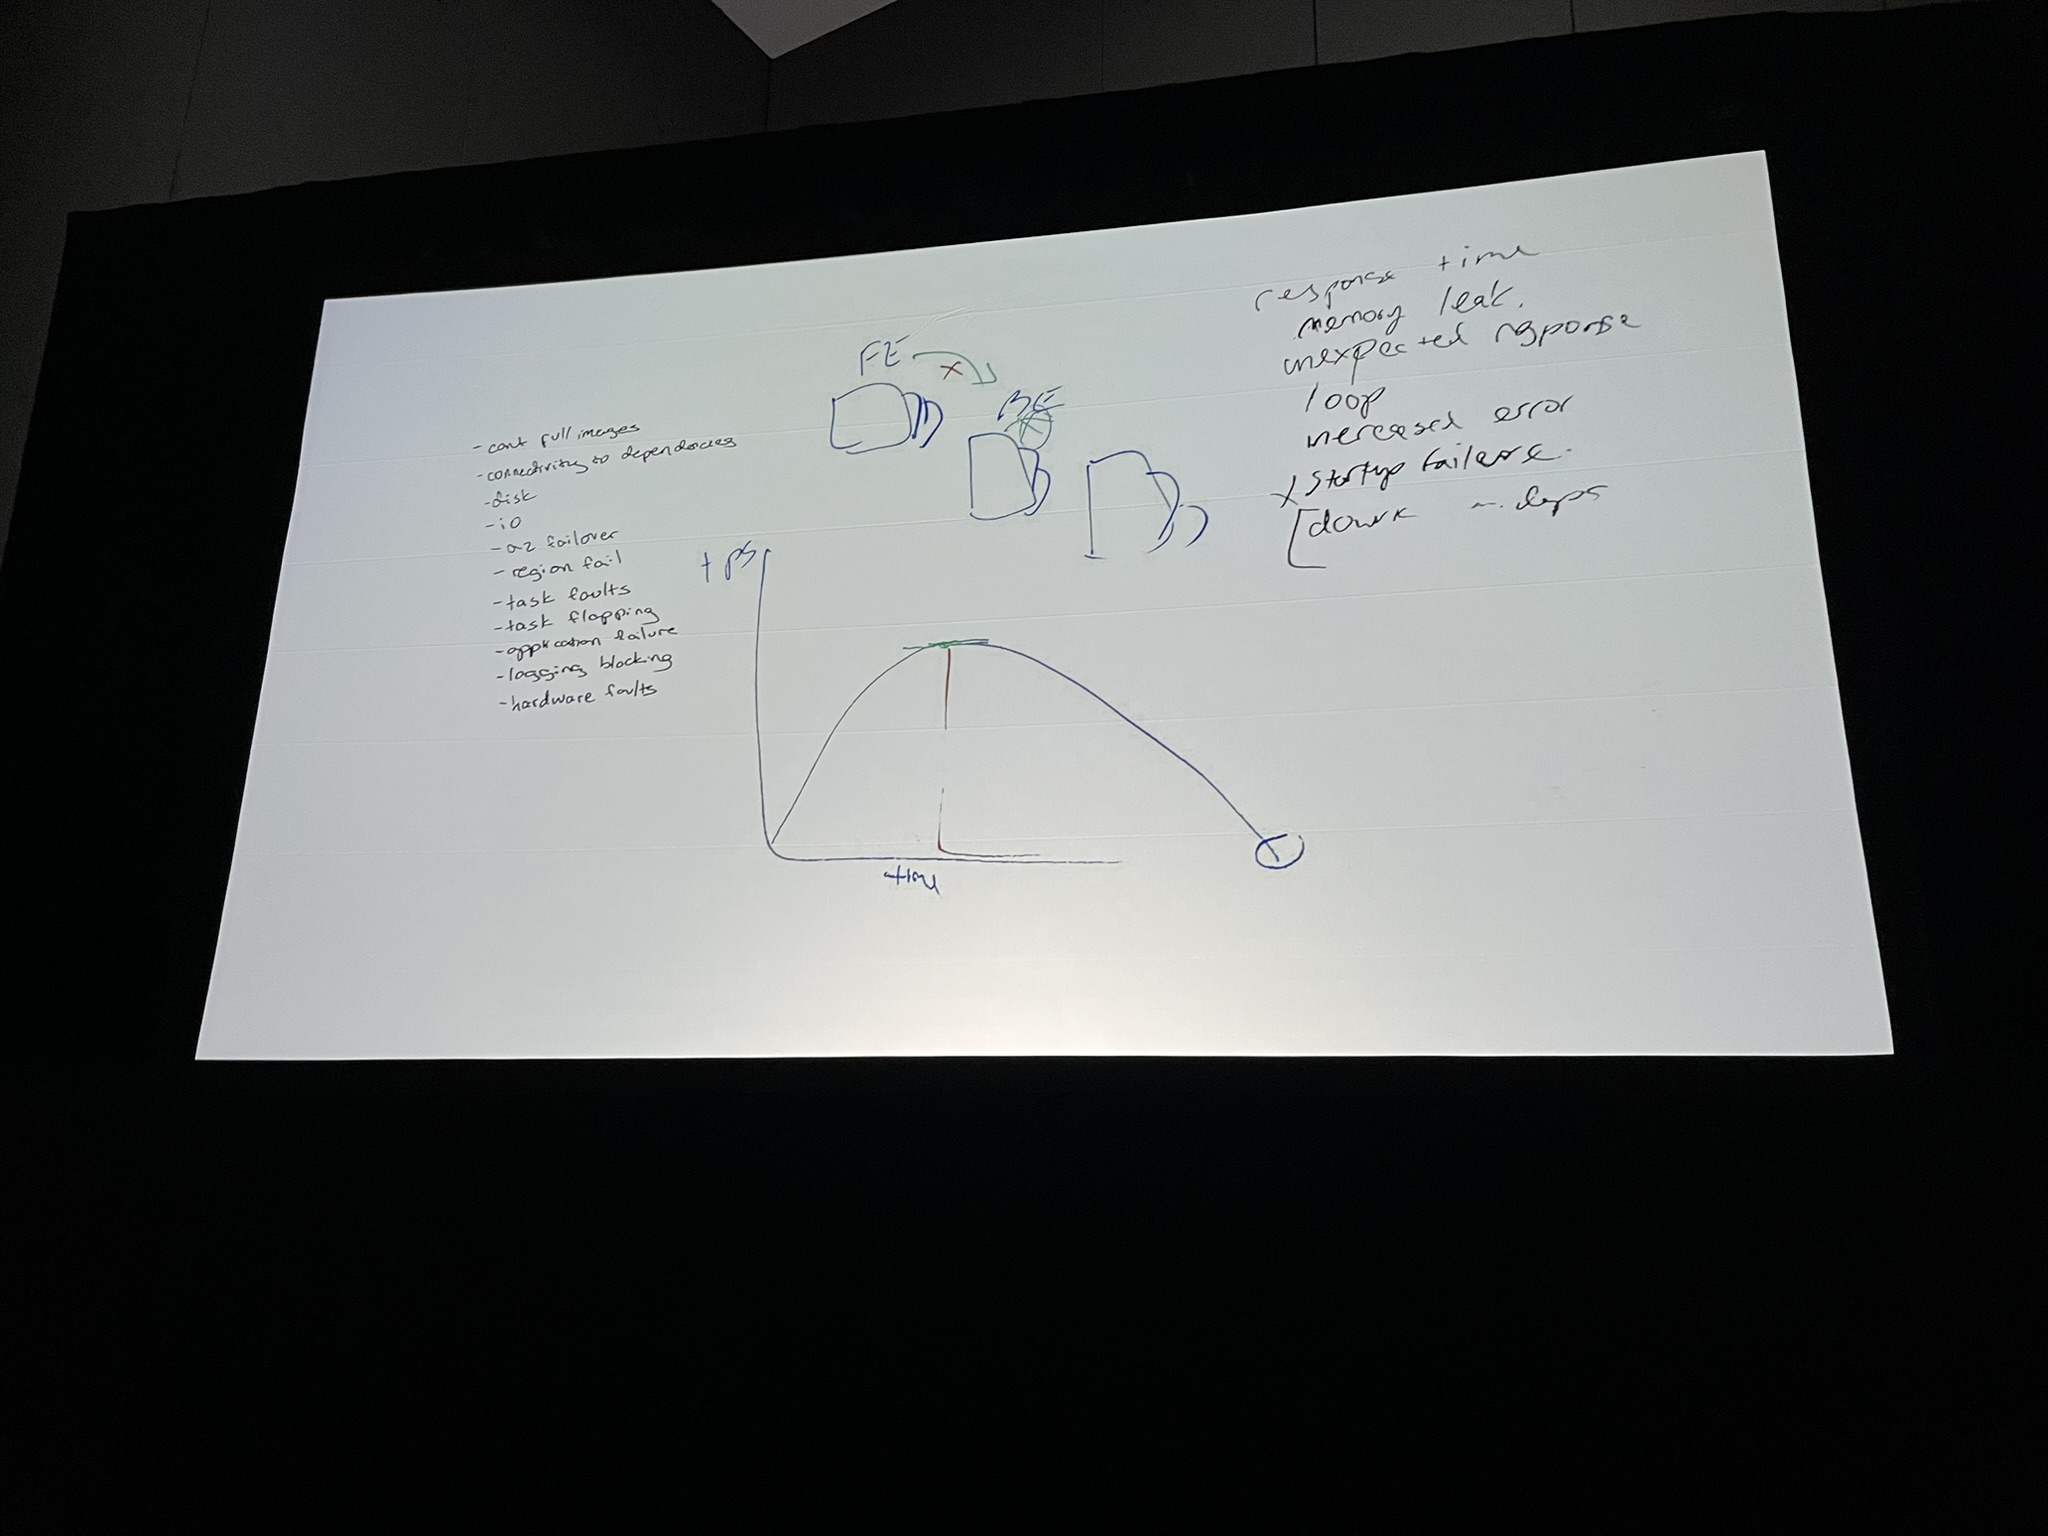 - cant pull images
- connectivity to dependencies
- disk
- io
- az failover
- region fail
- task faults
- task flapping
- application failure
- logging blocking
- hardware faults
FE
X
BE
tps
time
response time
memory leak.
unexpected response
loop
increased error
x startup failure.
deps